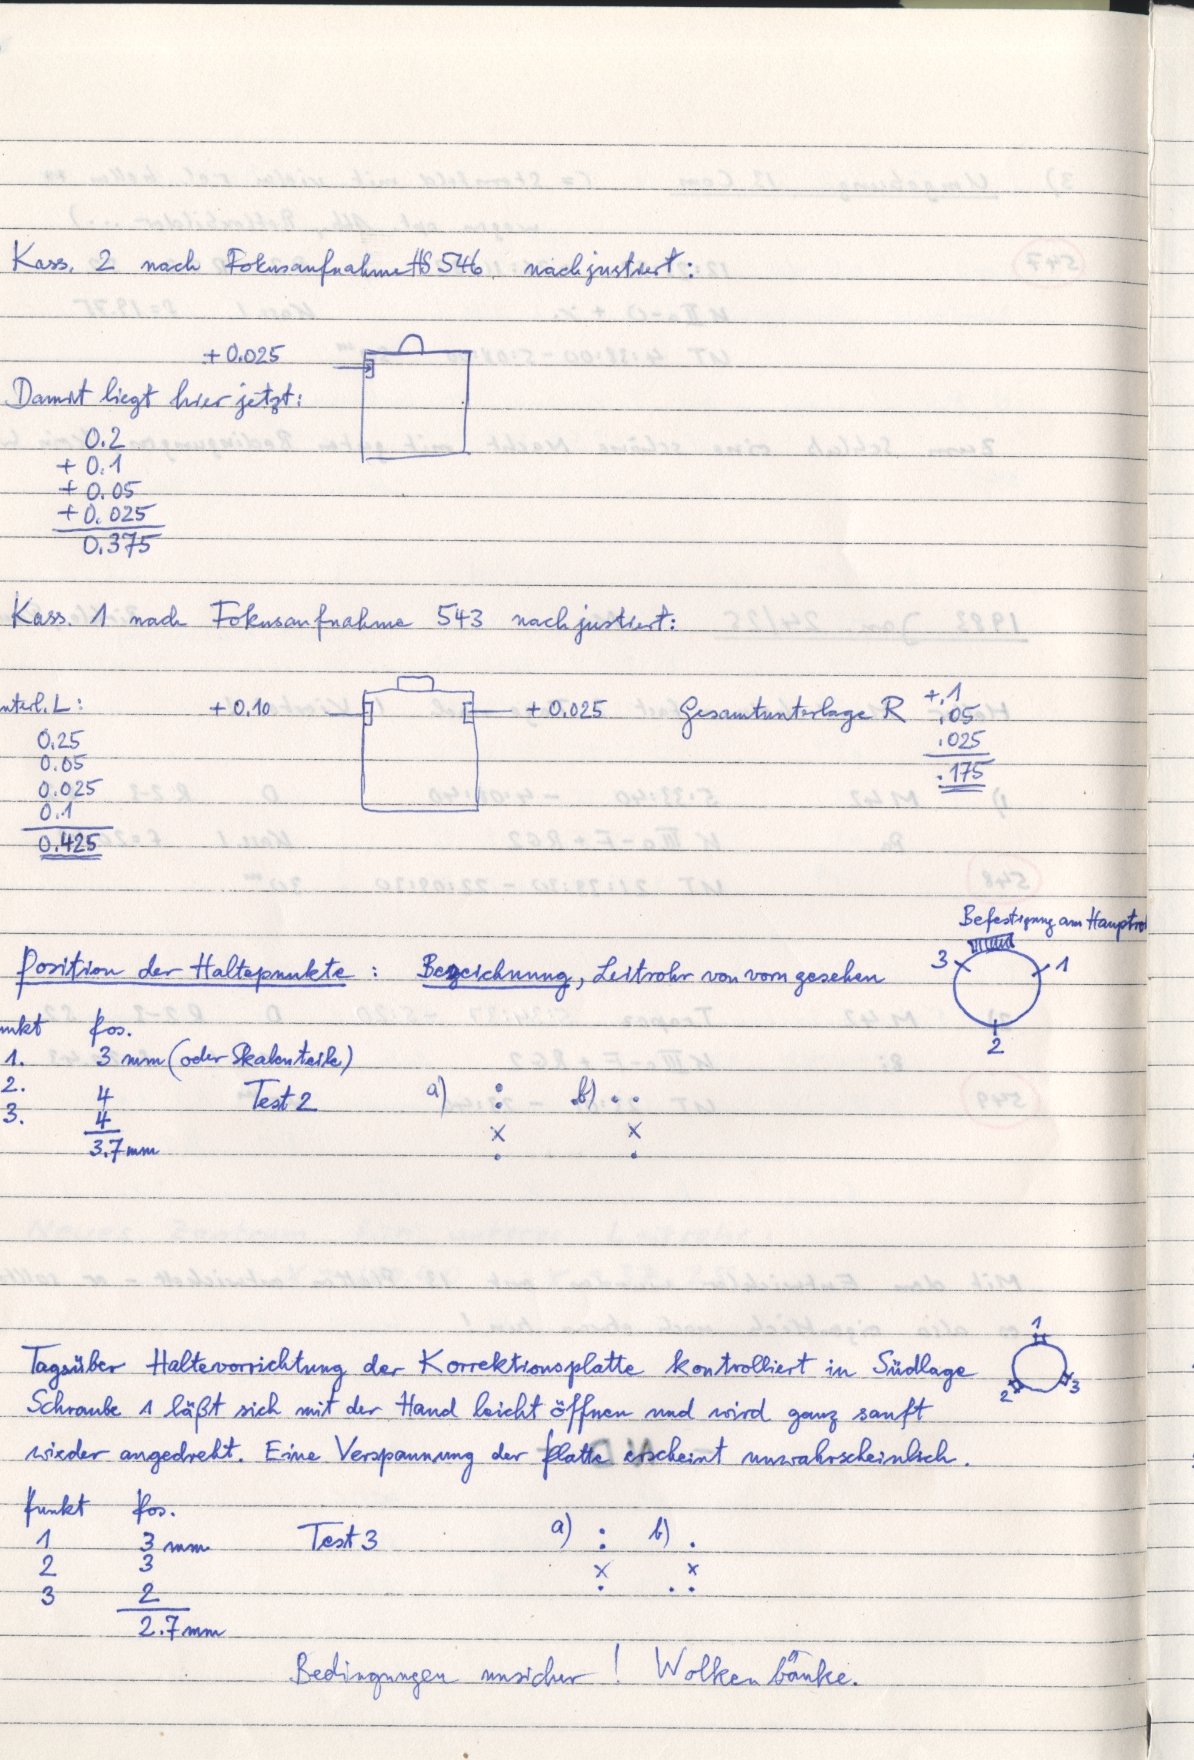 Kass. 2 nach Fokusaufnahme HS 546 nachjustiert:
+ 0.025
Damit liegt hier jetzt:
0.2
+ 0.1
+ 0.05
+ 0.025
0.375
Kass. 1 nach Fokusaufnahme 543 nachjustiert:
nterl. L:
+ 0.10
+ 0.025
Gesamtunterlage R
+.1
.05
.025
.175
0.25
0.05
0.025
0.1
0.425
Befestigung am Hauptro
Position der Haltepunkte: Bezeichnung, Leitrohr von vorn gesehen
3
1
2
nkt Pos.
1. 3 mm (oder Skalenteile)
2. 4
3. 4
3.7 mm
Test 2 a) b)
1
2
3
Tagsüber Haltevorrichtung der Korrektionsplatte kontrolliert in Südlage
Schraube 1 läßt sich mit der Hand leicht öffnen und wird ganz sanft
wieder angedreht. Eine Verspannung der Platte erscheint unwahrscheinlich.
Punkt Pos.
1 3 mm
2 3
3 2
2.7 mm
Test 3 a) b)
Bedingungen unsicher! Wolkenbänke.